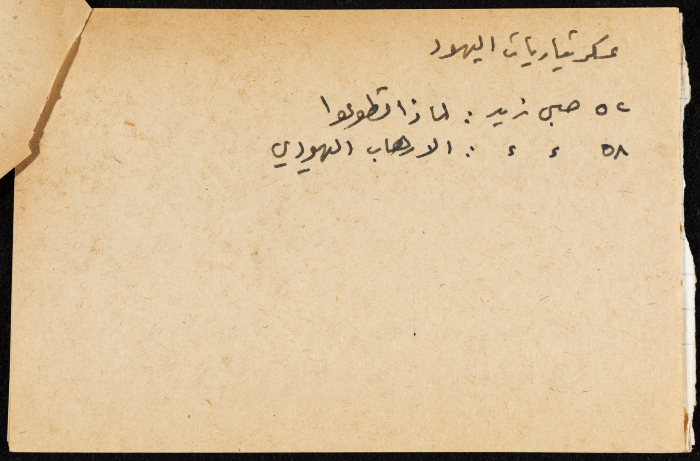 عسكر تياريات اليهود
٥٢ صبحي زيد : لماذا تطوعوا
٥٨ ء ء : الارهاب اليهودي